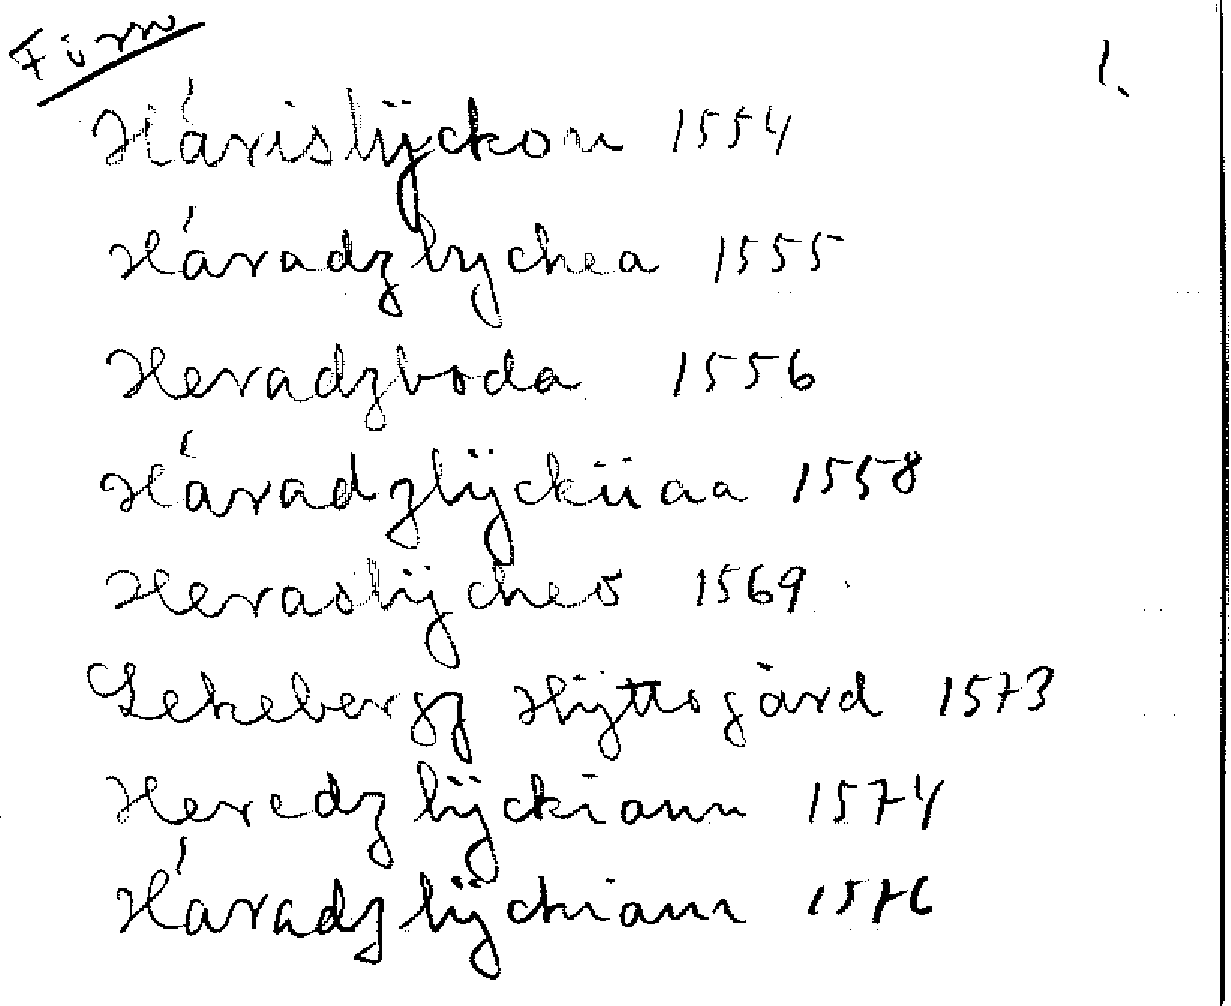 Förn
1.
Hárislÿckon 1554
Háradzlyckea 1555
Heradzboda 1556
Háradzlÿckiiaa 1558
Heraslÿckeo 1569
Lekebergz Hÿttogård 1573
Heredzlÿckiann 1574
Háradzlÿckiann 1576